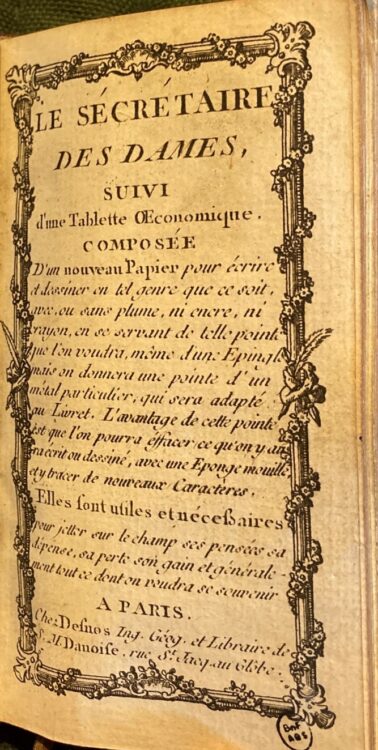 LE SÉCRÉTAIRE
DES DAMES,
SUIVI
d'une Tablette Œconomique.
COMPOSÉE
D'un nouveau Papier pour écrire
et dessiner en tel genre que ce soit,
avec, ou sans plume, ni encre, ni
crayon, en se servant de telle pointe
que l'on voudra, même d'une Epingle
mais on donnera une pointe d'un
métal particulier, qui sera adapté
au Livret. L'avantage de cette pointe
est que l'on pourra éffacer ce qu'on y au
ra écrit ou dessiné, avec une Eponge mouillé
et y tracer de nouveaux Caractères.
Elles sont utiles et nécessaires
pour jetter sur le champ ses pensées sa
dépense, sa perte son gain et générale-
ment tout ce dont on voudra se souvenir
A PARIS.
Chez Desnos Ing. Géog. et Libraire de
S. M. Danoise, rue St. Jacq. au Globe.
BnF
ARS